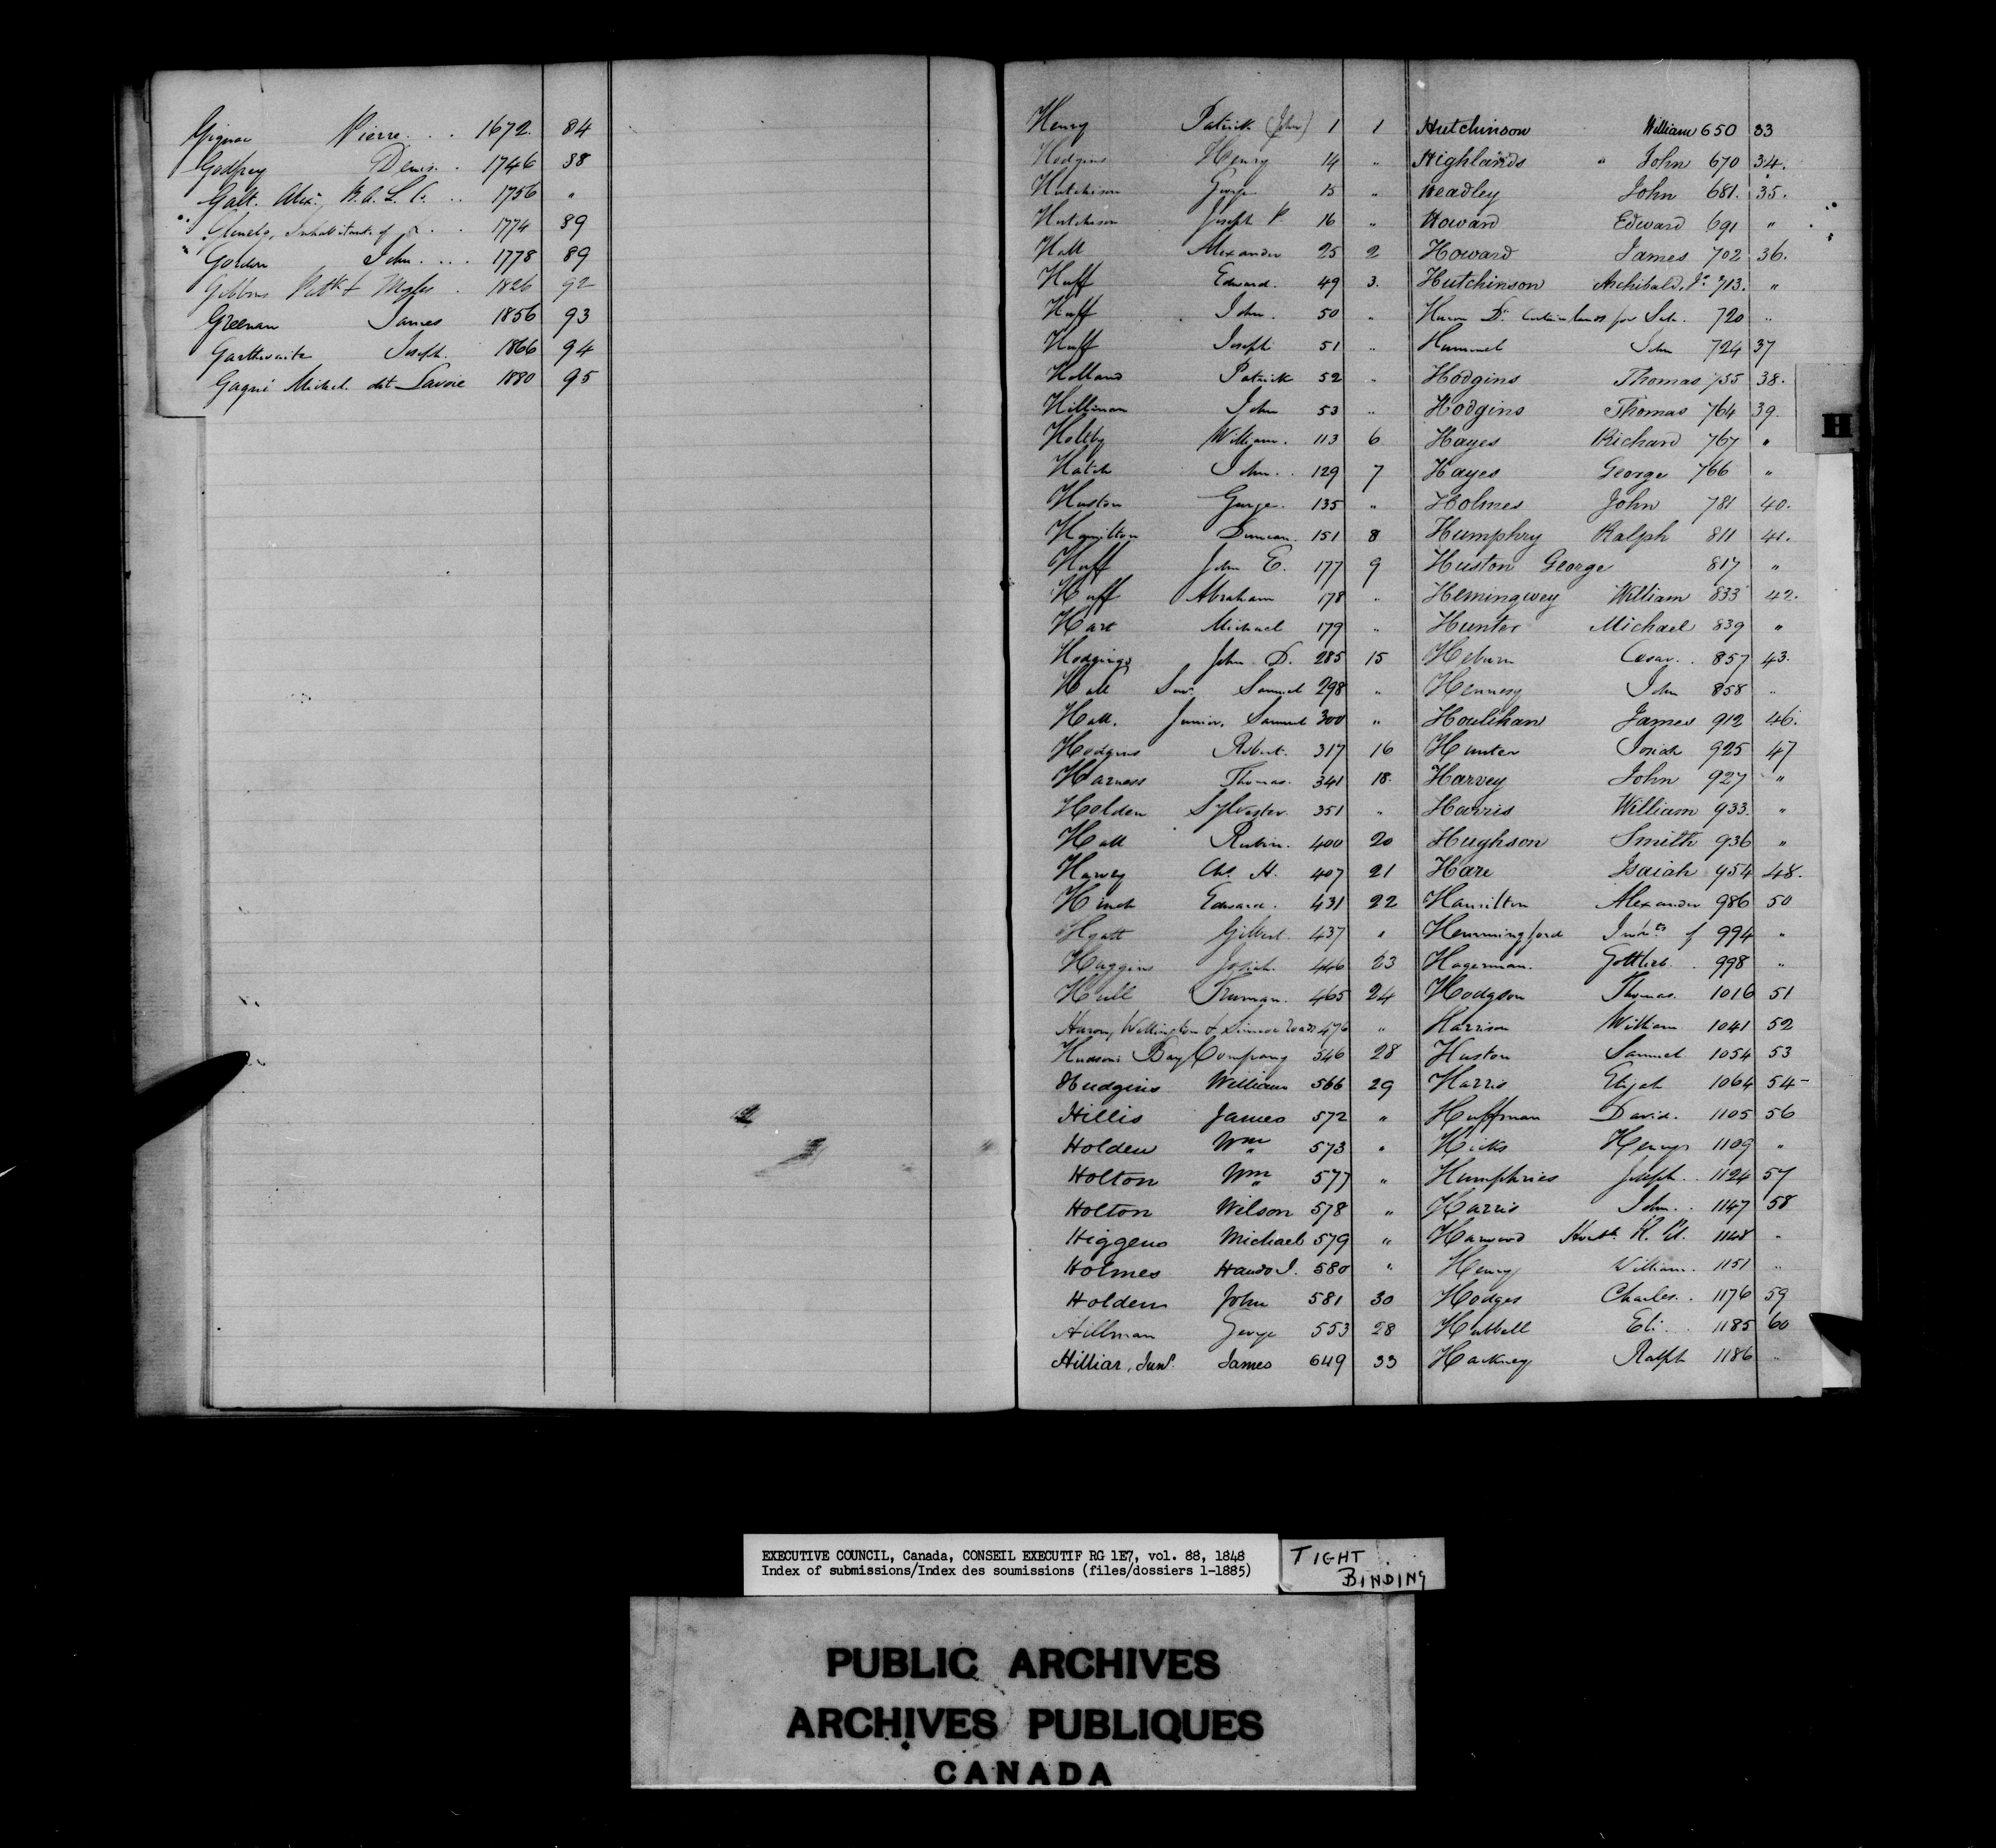 Gignac Pierre . . . 1672. 84
Godfrey Denis. . 1746 88
Galt. Alexr., B.A.L.C. . . 1756 "
Glenelg, Inhabitants of . . . 1774 89
Gordon John . . . . 1778 89
Gibbons Patk & Myles . 1826 92
Greenan James 1856 93
Garthwaite Joseph. 1866 94
Gagné Michel dit Savoie 1880 95
Henry Patrick (John) 1 1
Hodgins Henry 14 "
Hutchison George 15 "
Hutchison Joseph P 16 "
Hall Alexander 25 2
Huff Edward. 49 3.
Huff John. 50 "
Huff Joseph 51 "
Holland Patrick 52 "
Hilliman John 53 "
Holtby William. 113 6
Hatch John. . 129 7
Huston George. 135 "
Hamilton Duncan. 151 8
Huff John E. 177 9
Huff Abraham 178 "
Hart Michael 179 "
Hodgings John D. 285 15
Hall Senr. Samuel 298 "
Hall. Junior, Samuel 300 "
Hodgins Robert. 317 16
Harness Thomas. 341 18.
Holden Sylvester. 351 "
Hall Rubin. 400 20
Harvey Chs. H. 407 21
Hinch Edward. 431 22
Hyatt Gilbert. 437 "
Huggins Josiah. 446 23
Hull Truman. 465 24
Huron, Wellington & Simcoe Roads 476 "
Hudson's Bay Company 546 28
Hudgins William 566 29
Hillis James 572 "
Holden Wm 573 "
Holton Wm 577 "
Holton Wilson 578 "
Higgens Michael 579 "
Holmes 580 "
Holden John 581 30
Hillman George 553 28
Hilliar, Junr. James 649 33
Hutchinson William 650 33
Highlands " John 670 34.
Headley John 681. 35.
Howard Edward 691 "
Howard James 702 36.
Hutchinson Archibald, Jr. 713. "
Huron Dt. certain lands for Sale. 720 "
Hummel John 724 37
Hodgins Thomas 755 38.
Hodgins Thomas 764 39.
Hayes Richard 767 "
Hayes George 766 "
Holmes John 781 40.
Humphry Ralph 811 41.
Huston George 817 "
Hemingwey William 833 42.
Hunter Michael 839 "
Heburn Cesar. . 857 43.
Hennesy John 858 "
Houlihan James 912 46.
Hunter Josiah 925 47
Harvey John 927 "
Harris William 933. "
Hughson Smith 936 "
Hare Isaiah 954 48.
Hamilton Alexander 986 50
Hemmingford Inhts of 994 "
Hagerman. Gottlieb . 998 "
Hodgson Thomas. 1016 51
Harrison William 1041 52
Huston Samuel 1054 53
Harris Elijah 1064 54-
Huffman David. 1105 56
Hicks Henry 1109 "
Humphries Joseph . . 1124 57
Harris John. . 1147 58
Harwood 1148 "
Henry William. 1151 "
Hodges Charles. . 1176 59
Hubbell Eli . . 1185 60
Hackney Ralph 1186 "
H
EXECUTIVE COUNCIL, Canada, CONSEIL EXECUTIF RG 1E7, vol. 88, 1848
Index of submissions/Index des soumissions (files/dossiers 1-1885)
TIGHT
BINDING
PUBLIC ARCHIVES
ARCHIVES PUBLIQUES
CANADA